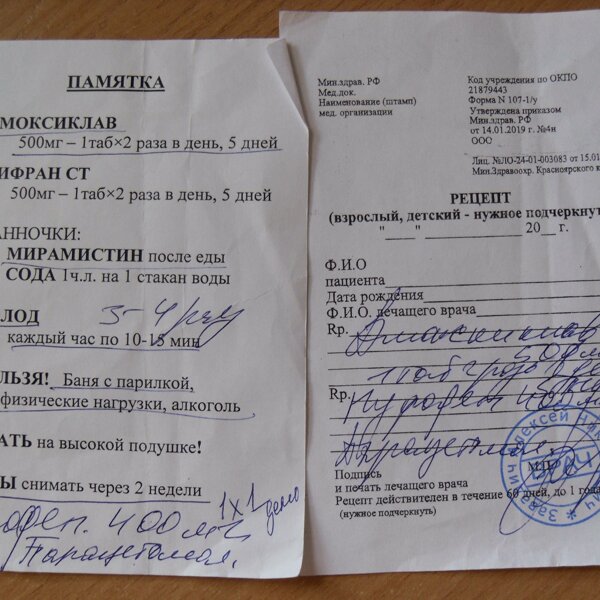 ПАМЯТКА
МОКСИКЛАВ
500мг – 1таб×2 раза в день, 5 дней
ИФРАН СТ
500мг – 1таб×2 раза в день, 5 дней
АННОЧКИ:
МИРАМИСТИН после еды
СОДА 1ч.л. на 1 стакан воды
3-4 р
ЛОД
каждый час по 10-15 мин
ЛЬЗЯ! Баня с парилкой,
физические нагрузки, алкоголь
АТЬ на высокой подушке!
Ы снимать через 2 недели
офен 400 мг 1х1 день
Парацетамол.
Мин.здрав. РФ
Мед.док.
Наименование (штамп)
мед. организации
Код учреждения по ОКПО
21879443
Форма N 107-1/у
Утверждена приказом
Мин.здрав. РФ
от 14.01.2019 г. №4н
ООО
Лиц. №ЛО-24-01-003083 от 15.01
Мин.Здравоохр. Красноярского к
РЕЦЕПТ
(взрослый, детский - нужное подчеркнут
"____" ____________ 20__ г.
Ф.И.О
пациента
Дата рождения
Ф.И.О. лечащего врача
Rp. Амоксиклав
500 м
1 таб
Rp. Нурофен 400 м
Парацетамол
М.П.
Подпись
и печать лечащего врача
Рецепт действителен в течение 60 дней, до 1 года
(нужное подчеркнуть)
Алексей
ВРАЧ